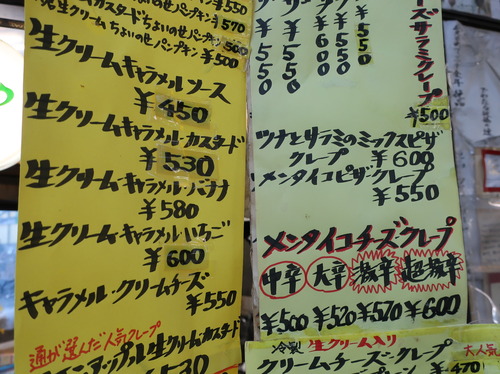 ¥550
カスタードちょいのせパンプキン ¥570
生クリームちょいのせパンプキン ¥500
¥500
生クリームキャラメルソース
¥450
生クリームキャラメル・カスタード
¥530
生クリームキャラメル・バナナ
¥580
生クリームキャラメル・いちご
¥600
キャラメル・クリームチーズ
¥550
通が選んだ人気クレープ
生クリームカスタード
530
ーズサラミクレープ
¥500
¥550
¥550
¥600
¥550
550
ツナとサラミのミックスピザ
クレープ ¥600
メンタイコピザクレープ
¥550
メンタイコチーズクレープ
中辛 大辛 激辛 超激辛
¥500 ¥520 ¥570 ¥600
冷製 生クリーム入り 大人気
クリームチーズ・クレープ
¥470